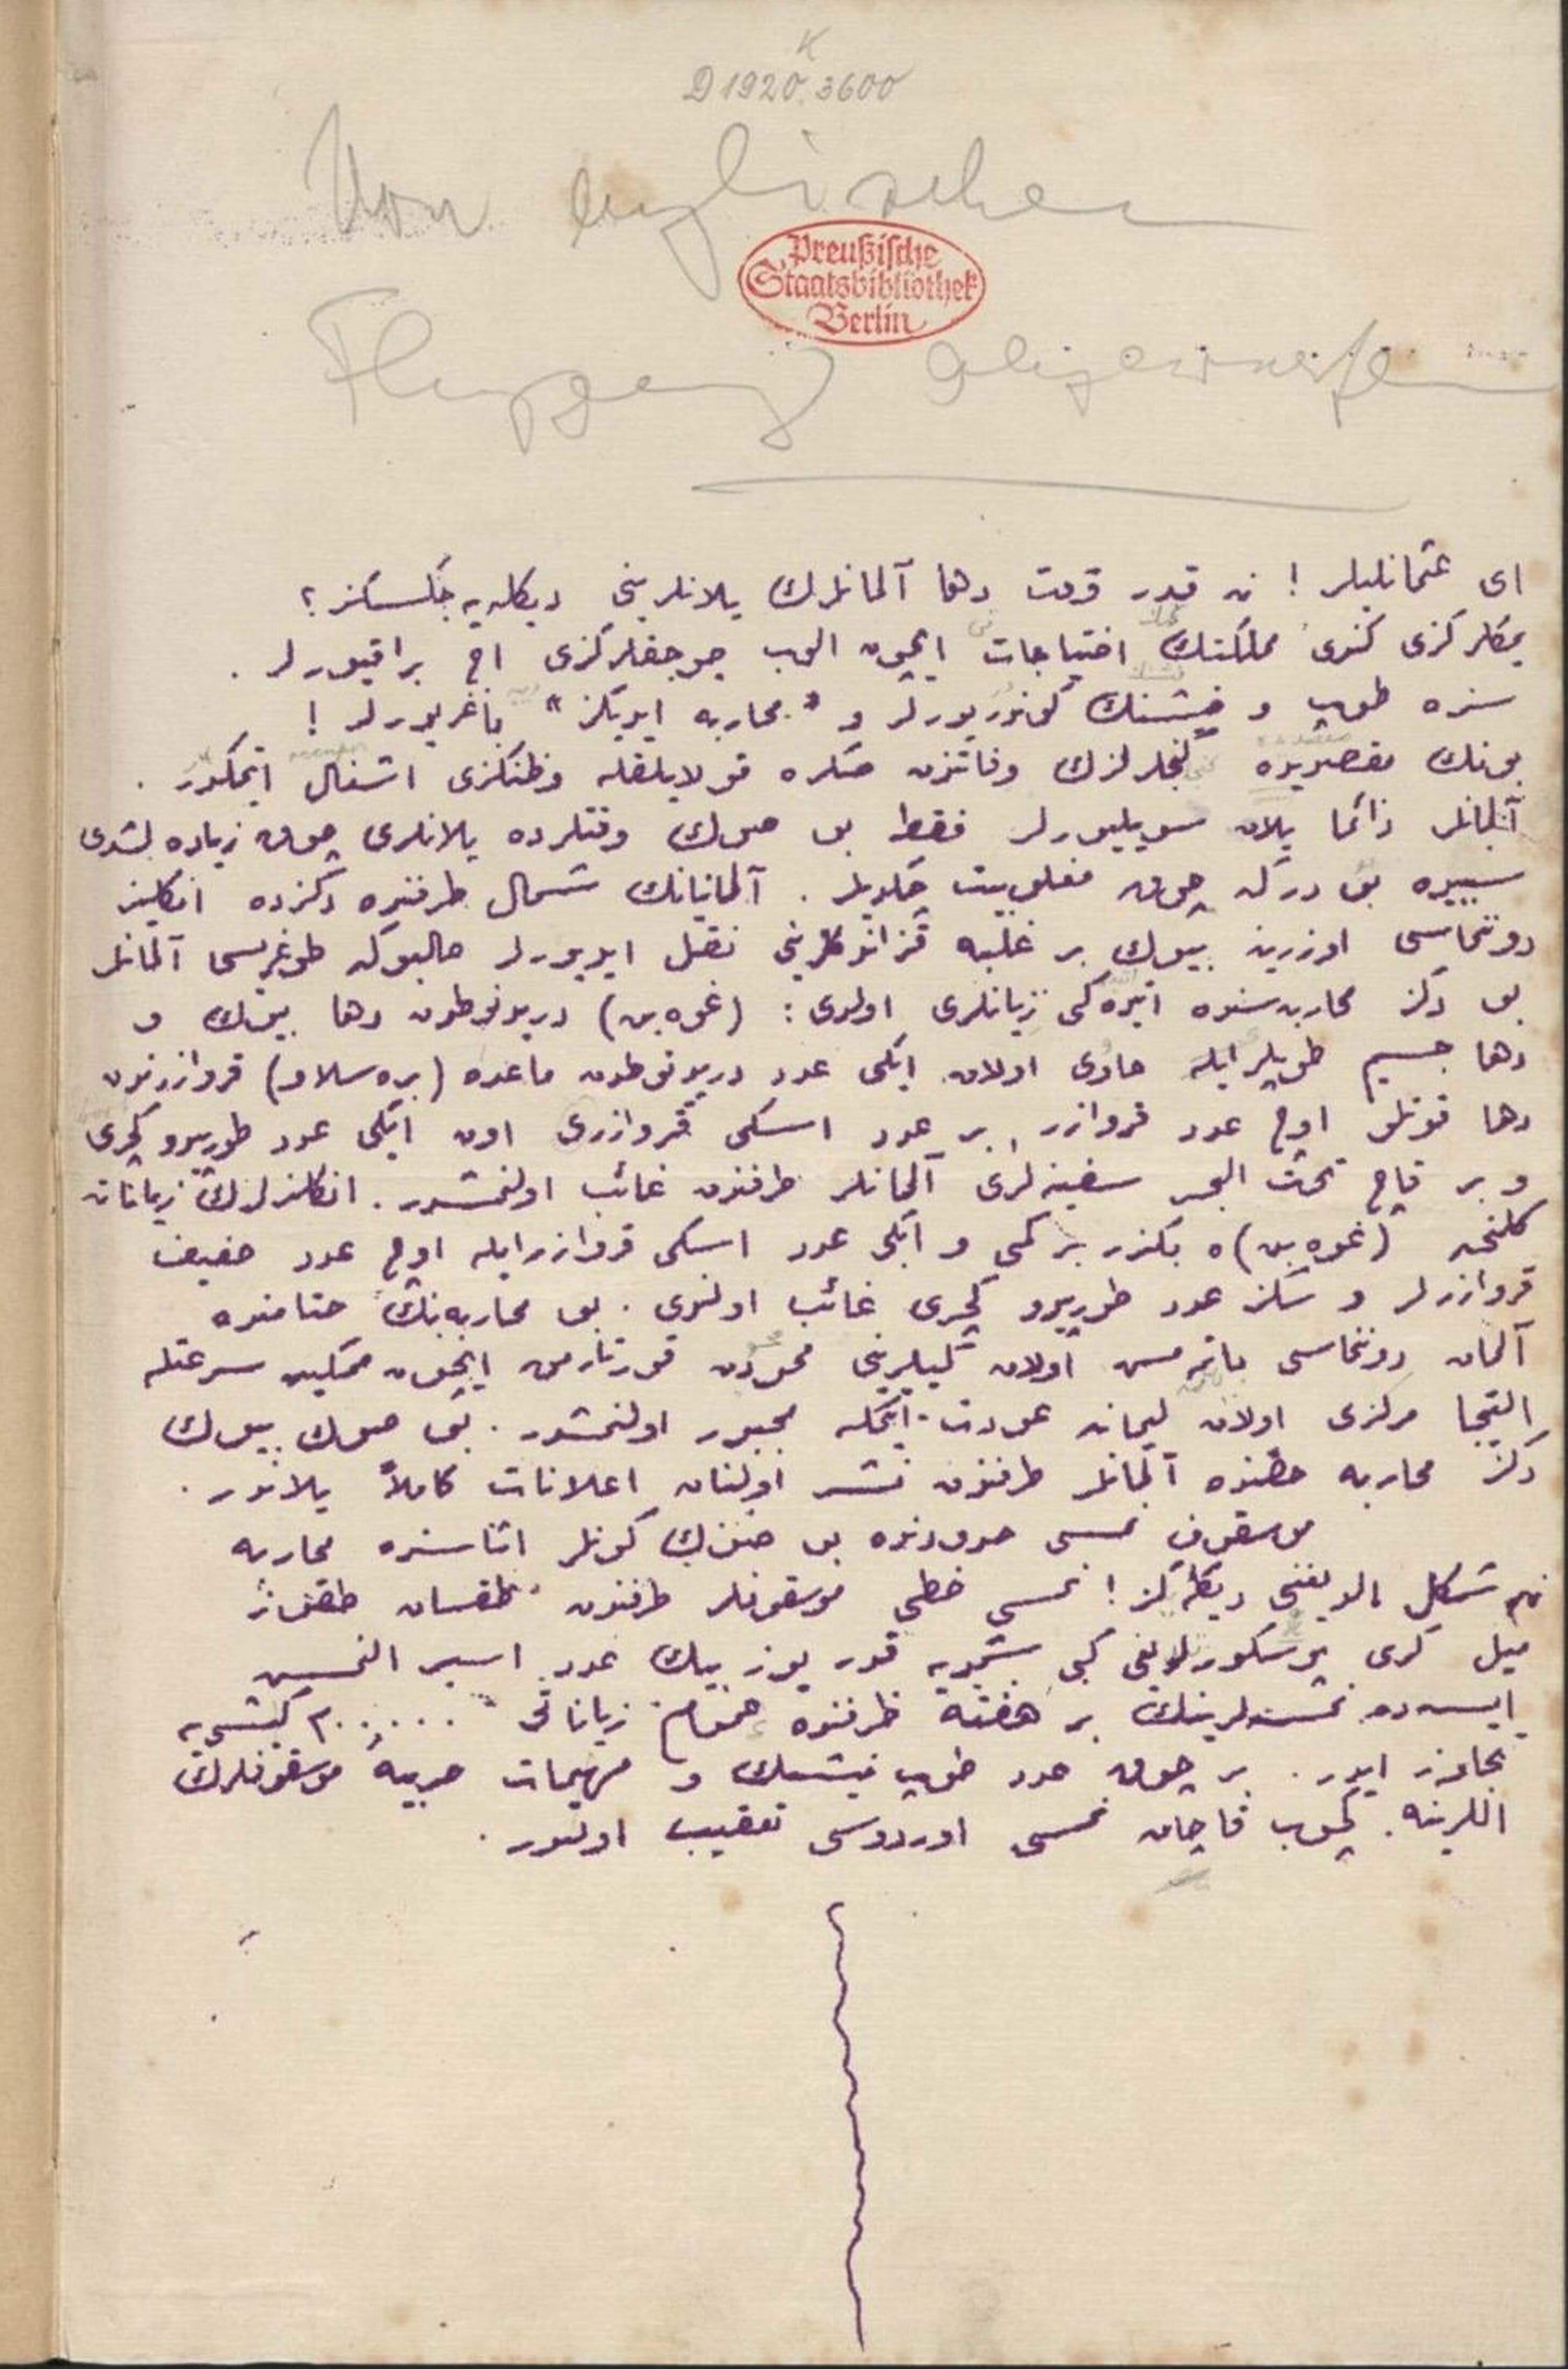 D 1920. 3600
K
Von englischen
Preußische
Staatsbibliothek
Berlin
Flugzeug abgeworfen
ای عثمانلیلر ! نه قدر وقت دها آلمانلرك یلانلرینی دیکله یه جکسکز ؟
یمکلرکزی کندی مملکتنك احتیاجات ایچون الوب چوجقلرکزی اچ براقیورلر .
سزه طوپ و فیشنك کوندریورلر و " محاربه ایدیکز " باغریورلر !
بونك مقصدیده کنجلرلزك وفاتندن صکره قولایلقله وطنکزی اشغال ایتمکدر .
آلمانلر دائما یلان سویلیورلر فقط بو صوك وقتلرده یلانلری چوق زیاده لشدی
سببیده بودرکه چوق مغلوبیت چکدیلر . آلمانیانك شمال طرفنده دکزده انکلیز
دوننماسی اوزرینه بیوك بر غلبه قزاندقلرینی نقل ایدیورلر حالبوکه طوغریسی آلمانلر
بو دکز محاربه سنده اتیده کی زیانلری اولدی : (غوه بن) دریدنوطدن دها بیوك و
دها جسیم طوپلر ایله حاوی اولان ایکی عدد دریدنوطدن ماعدا (بره سلاو) قروازرندن
دها قوتلو اوچ عدد قروازر ، بر عدد اسکی قروازری اون ایکی عدد طورپیدو کچری
و بر قاچ تحت البحر سفینه لری آلمانلر طرفندن غائب اولنمشدر . انکلیزلرك زیاناته
کلنجه (غوه بن) ه بکزر بر کمی و ایکی عدد اسکی قروازر ایله اوچ عدد خفیف
قروازرلر و سکز عدد طورپیدو کچری غائب اولندی . بو محاربه نك ختامنده
آلمان دوننماسی باتمامس اولان کمیلرینی محودن قورتارمق ایچون ممکن سرعتله
التجا مرکزی اولان لیمانه عودت ایتمکه مجبور اولنمشدر . بو صوك بیوك
دکز محاربه حقنده آلمانلر طرفندن نشر اولنان اعلانات کاملاً یلاندر .
موسقوف نمسی حدودنده بو صوك کونلر اثناسنده محاربه
نه شکل الدیغنی دیکله کز ! نمسی خطی موسقوفلر طرفندن طقسان طقوز
میل کری پوسکورلدیغی کبی شمدیه قدر یوز بیك عدد اسیر النمش
ایسه ده نمسه لرینك بر هفته ظرفنده عموم زیاناتی ٢٠٠٠٠٠ کیشیی
تجاوز ایدر . بر چوق عدد طوپ فیشنك و مهمات حربیه موسقوفلرك
اللرینه کچوب قاچان نمسی اوردوسی تعقیب اولنور .